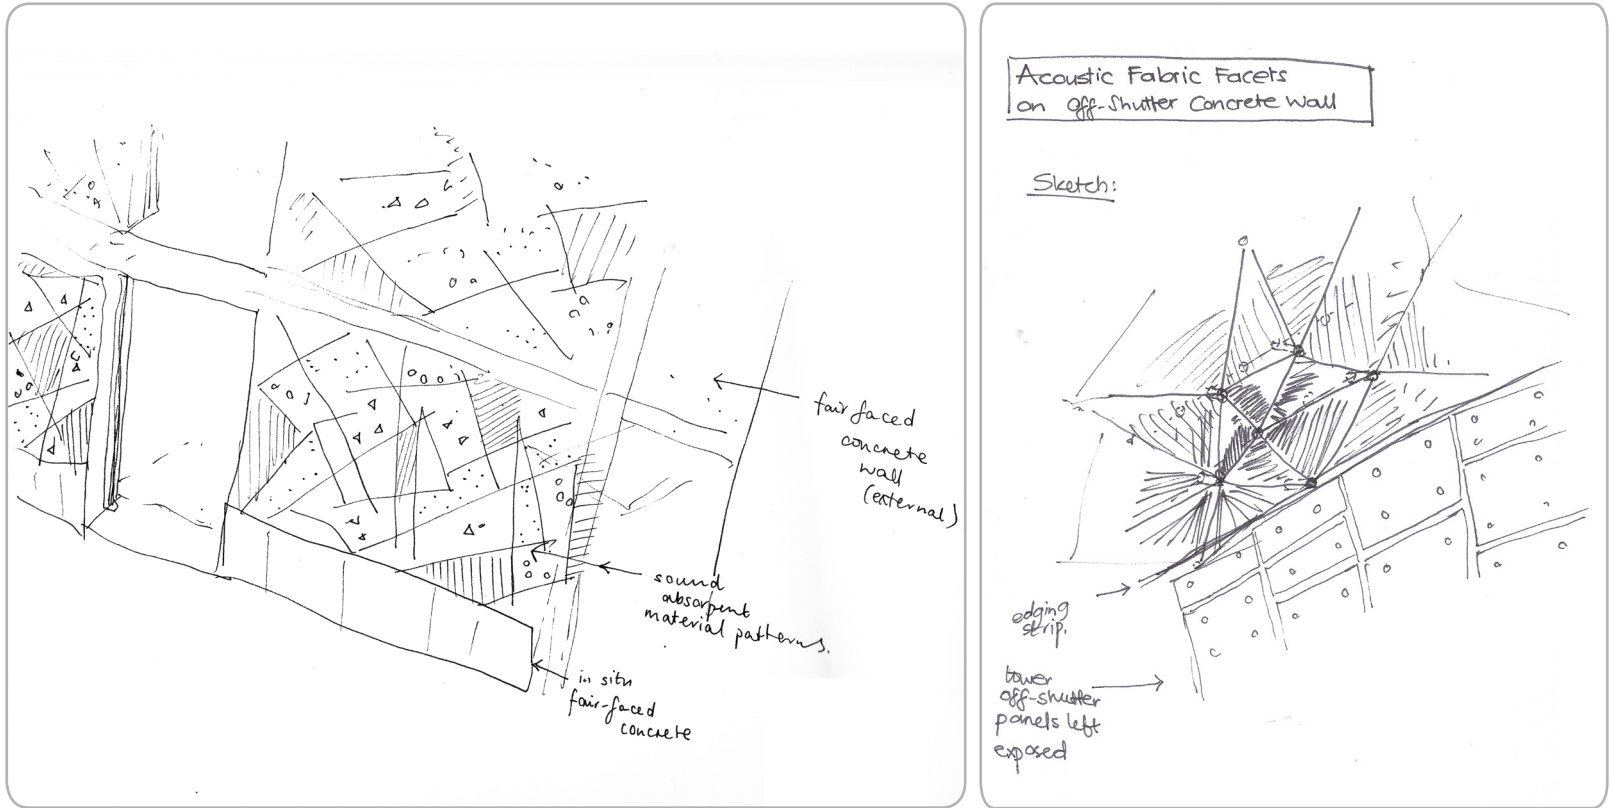 fair faced
concrete
wall
(external)
sound
absorpent
material patterns.
in situ
fair-faced
concrete
Acoustic Fabric Facets
on Off-Shutter Concrete Wall
Sketch:
edging
strip.
Lower
off-shutter
panels left
exposed